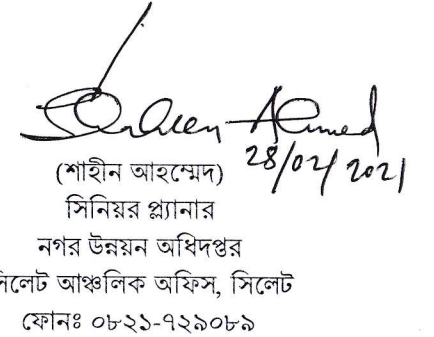 Shaheen Ahmed
28/02/2021
(শাহীন আহম্মেদ)
সিনিয়র প্ল্যানার
নগর উন্নয়ন অধিদপ্তর
সিলেট আঞ্চলিক অফিস, সিলেট
ফোনঃ ০৮২১-৭২৯০৮৯